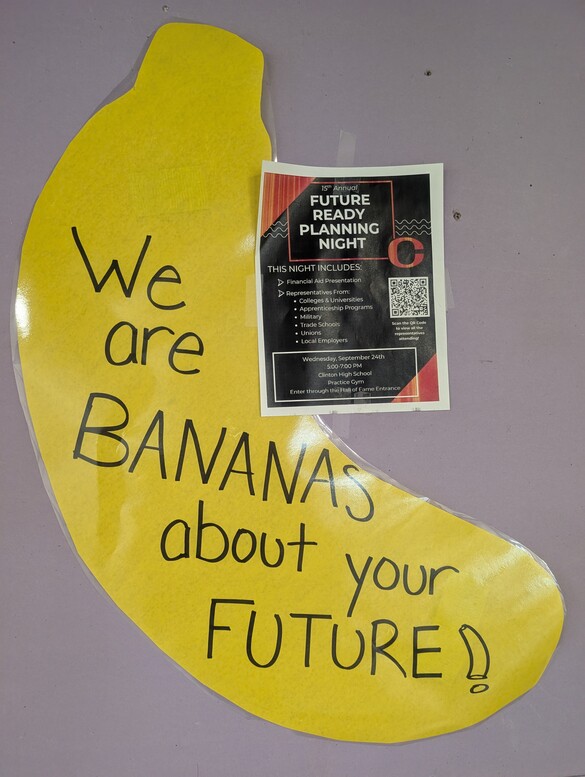 We
are
BANANAS
about your
FUTURE!
15th Annual
FUTURE
READY
PLANNING
NIGHT
C
THIS NIGHT INCLUDES:
Financial Aid Presentation
Representatives From:
Colleges & Universities
Apprenticeship Programs
Military
Trade Schools
Unions
Local Employers
Scan the QR Code
to view all the
representatives
attending!
Wednesday, September 24th
5:00-7:00 PM
Clinton High School
Practice Gym
Enter through the Hall of Fame Entrance